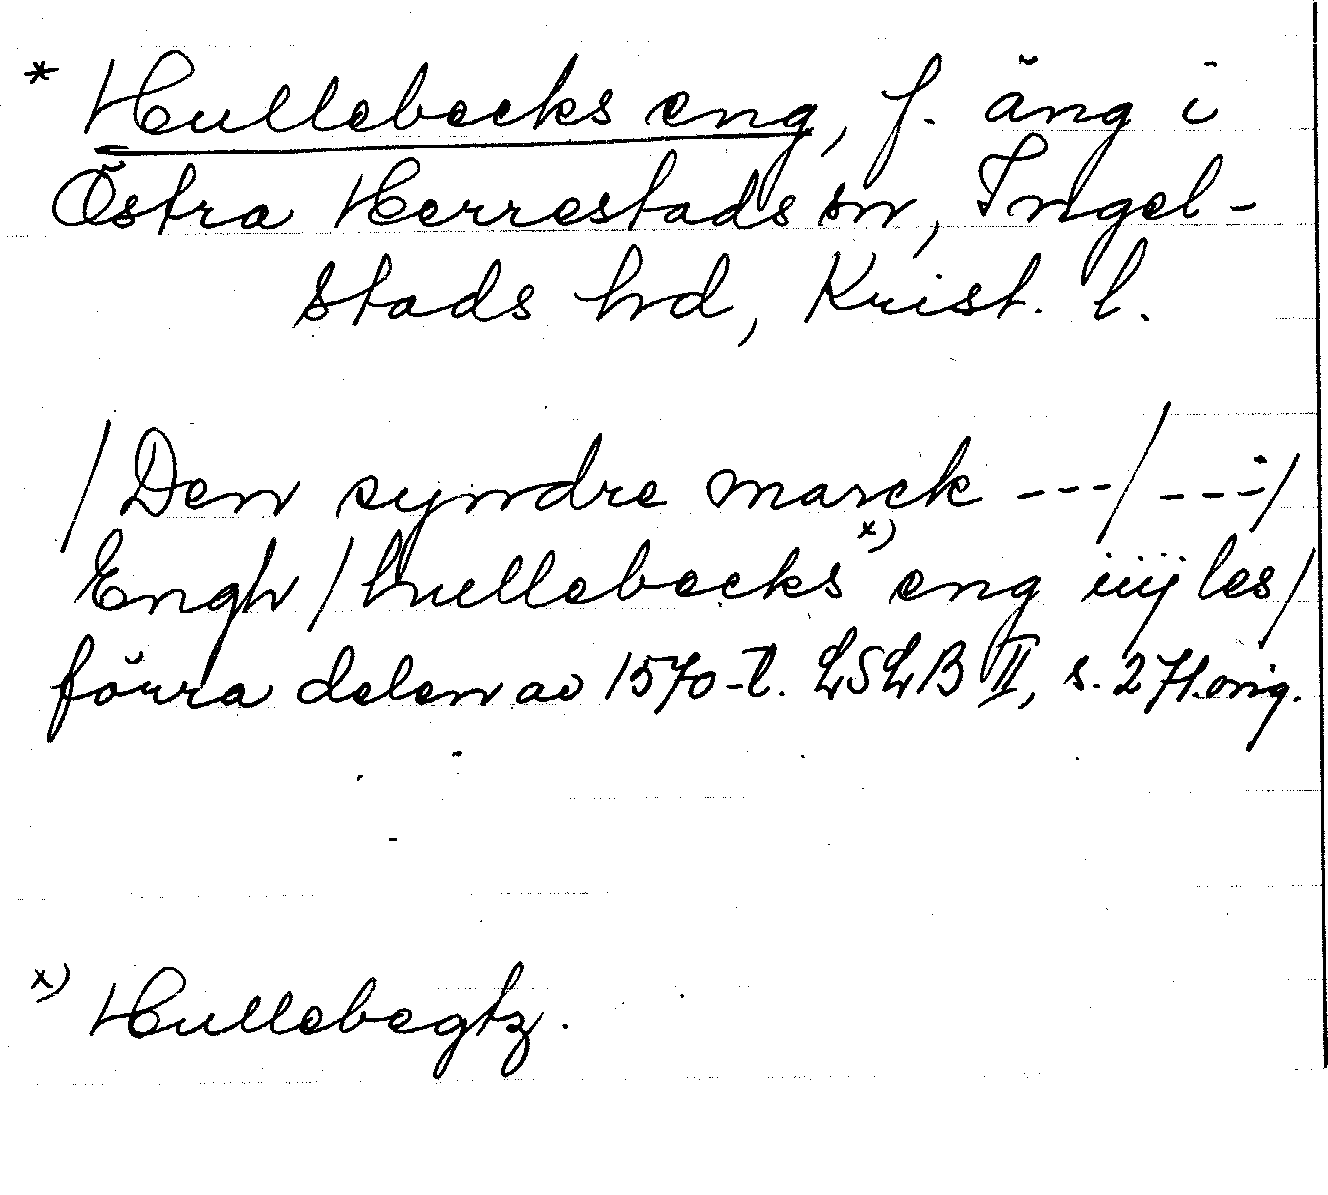 * Hullebecks eng, f. äng i
Östra Herrestads sn, Ingel-
stads hd, Krist. l.
/Den syndre marck ---/ ---/
Engh / hullebecks x) eng iiij les/
förra delen av 1570-t. LSLB II, s. 271. orig.
x) Hullebegtz.